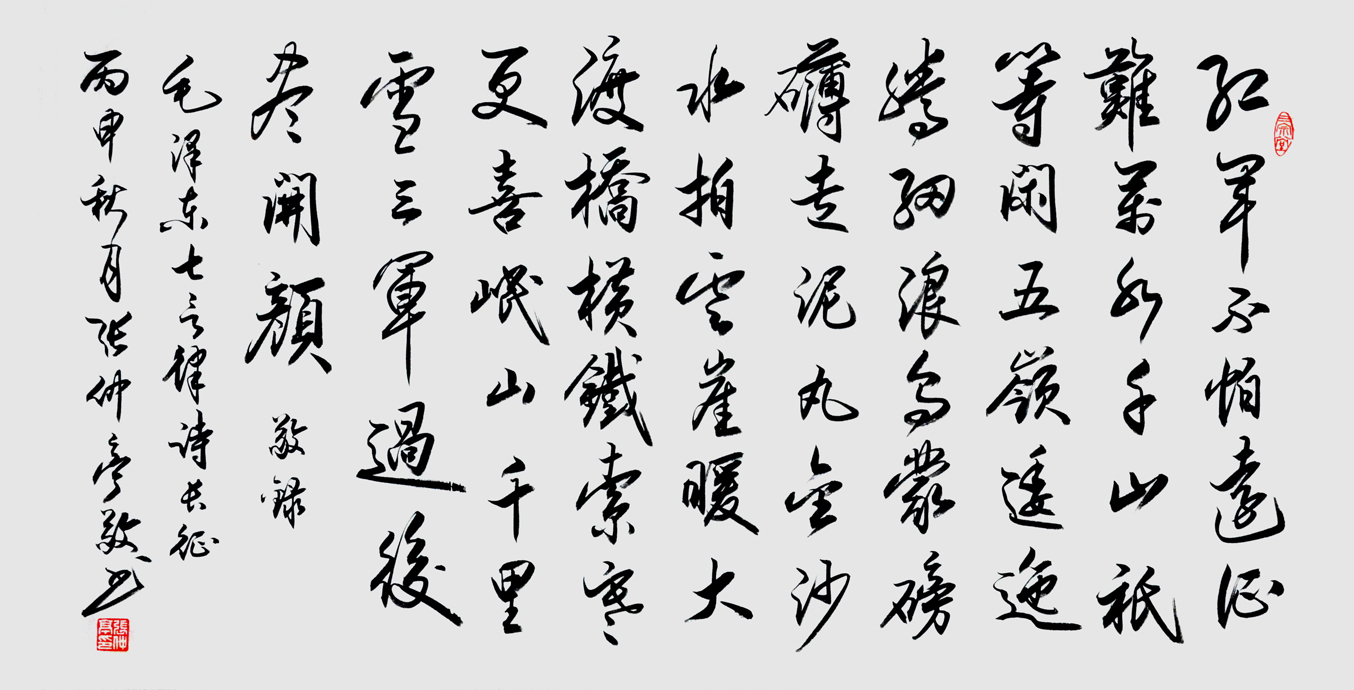 红军不怕远征
難萬水千山祇
等閑五嶺逶迤
騰細浪烏蒙磅
礴走泥丸金沙
水拍雲崖暖大
渡橋横鐵索寒
更喜岷山千里
雪三軍過後
尽開顔 敬録
毛泽东七言律诗长征
丙申秋月张仲亭敬书
張仲亭印